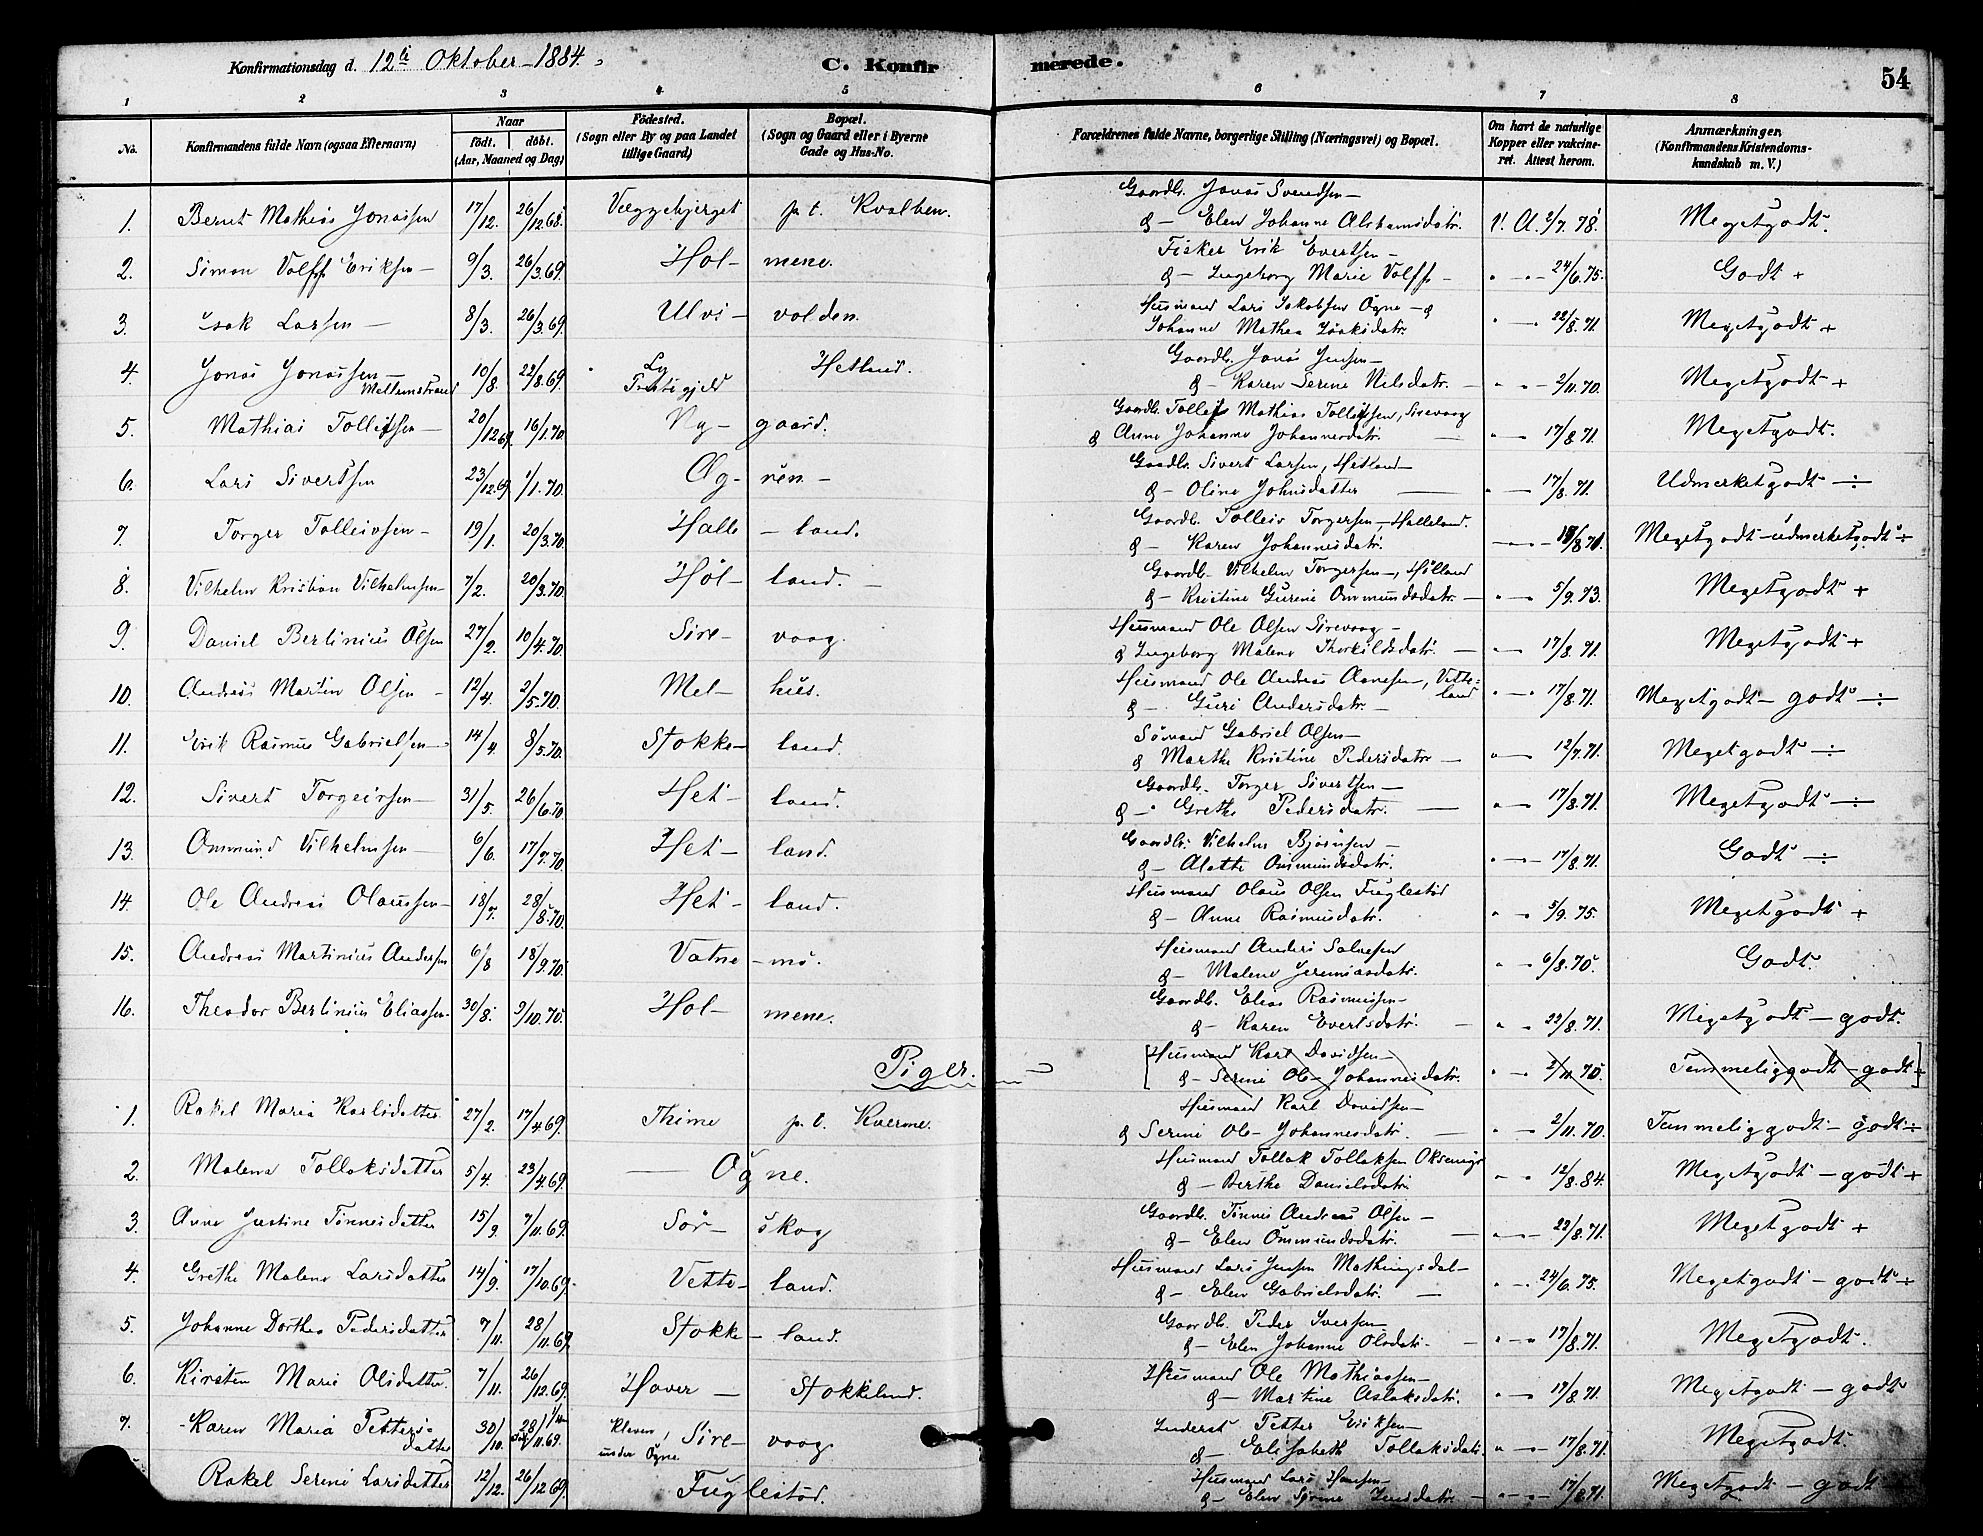 Konfirmationsdag d. 12te Oktober 1884.
C. Konfirmerede.
54
1 2 3 4 5 6 7 8
No. Konfirmandens fulde Navn (ogsaa Efternavn) Naar födt. döbt. (Aar, Maaned og Dag) Födested. (Sogn eller By og paa Landet tillige Gaard) Bopæl. (Sogn og Gaard eller i Byerne Gade og Hus-No. Forældrenes fulde Navne, borgerlige Stilling (Næringsvei) og Bopæl. Om havt de naturlige Kopper eller vakcineret. Attest herom. Anmærkninger. (Konfirmandens Kristendomskundskab m. V.)
1. Bernt Mathias Jonassen 17/12. 26/12.68. Væggebjerget p. t. Kvalben. Gaardb. Jonas Svendsen – & – Elen Johanne Abrahamsdatr. V. A. 2/7 78. Megetgodt.
2. Simon Volff Eriksen – 9/3. 26/3.69. Hol – mene. Fisker Erik Evertsen – & – Ingeborg Marie Volff – " – 24/6.75. Godt +
3. Isak Larsen – 8/3. 26/3.69. Ulvs – volden. Husmand Lars Jakobsen Ogne – & Johanne Mathea Isaksdatr. " – 22/8.71. Megetgodt +
4. Jonas Jonassen – Mellemstrand 10/8. 22/8.69. Ly Thimes Prestegjeld Hetland. Gaardb. Jonas Jensen – & – Karen Serine Nilsdatr. – " – 2/11.70. Megetgodt +
5. Mathias Tolleifsen – 20/12 69. 16/1.70. Ny – gaard. Gaardb. Tolleif Mathias Tolleifsen, Sirevaag & Anne Johanne Johannesdatr. – " – 17/8 71. Megetgodt.
6. Lars Sivertsen 23/12.69 1/1.70. Og – nen – Gaardb. Sivert Larsen, Hetland – & – Oline Johnsdatter – " – 17/8.71. Udmerketgodt –:–
7. Torger Tolleivsen – 19/1. 20/3.70. Halle – land. Gaardb. Tolleiv Torgersen – Halleland. & – Karen Johannesdatr. – " – 18/8 71. Megetgodt – udmerketgodt ÷
8. Vilhelm Kristian Vilhelmsen – 7/2. 20/3.70. Höl – land. – Gaardb. Vilhelm Torgersen –, Hölland & – Kristine Gurine Ommundsdatr. – " – 5/9.73. Megetgodt +
9. Daniel Bertinius Olsen 27/2. 10/4.70. Sire – vaag. Husmand Ole Olsen Sirevaag – & Ingeborg Malene Thorkildsdatr. – " – 17/8.71. Megetgodt +
10. Andreas Martin Olsen – 12/4. 2/5.70. Mel – hus. Husmand Ole Andreas Aanesen –, Vetteland & – Guri Andersdatr. – " – 17/8.71. Megetgodt – godt ÷
11. Erik Rasmus Gabrielsen – 14/4. 8/5.70. Stokke – land. Sömand Gabriel Olsen – & Marthe Kristine Pedersdatr – " – 12/7.71. Megetgodt –:–
12. Sivert Torgersen – 31/5. 26/6.70 Het – land. Gaardb. Torger Sivertsen – & – Grethe Pedersdatr. – " – 17/8.71. Megetgodt –:–
13. Ommund Vilhelmsen – 6/6. 17/7.70. Het – land. Gaardb. Vilhelm Björnsen – & – Alette Ommundsdatr. " – 17/8.71. Godt –:–
14. Ole Andreas Olaussen – 18/7. 28/8.70. Het – land. Husmand Olaus Olsen Fuglestad & – Anne Rasmusdatr. " – 5/9.75. Megetgodt +
15. Andreas Martinius Andersen 6/8 18/9.70. Vatna – mo. Husmand Anders Salvesen & – Malene Jeremiasdatr. " – 6/8.70. Godt.
16. Theodor Bertinius Eliassen – 30/8. 2/10.70. Hol – mene. Gaardb. Elias Rasmussen – & – Karen Evertsdatr. – " – 22/8.71. Megetgodt – godt.
Piger. [Husmand Karl Davidsen – & – Serine Ols – Johannesdatr. " – 2/11.70. Temmeliggodt – godt]
1. Rakel Maria Karlsdatter. 27/2. 17/4 69. Thime p. t. Kverme. Husmand Karl Davidsen – & Serine Ols – Johannesdatr. – " – 2/11.70. Temmeliggodt – godt ÷
2. Malena Tollaksdatter 5/4. 23/4.69. – Ogne. Husmand Tollak Tollaksen & – Berthe Danielsdatr. " – 12/8.84. Megetgodt – godt +
3. Anne Justine Tönnesdatter 15/9. 7/11.69. Sör – skog Gaardb. Tönnes Andreas Olsen – & – Elen Ommundsdatr. – " – 22/8.71. Megetgodt +
4. Grethe Malene Larsdatter 14/9. 17/10.69. Vette – land. Husmand Lars Jensen Mathingsdal – & – Elen Gabrielsdatr. – " – 24/6.75. Megetgodt – godt ÷
5. Johanne Dorthea Pedersdatter 7/11. 28/11.69. Stokke – land. Gaardb. Peder Iversen – & – Elen Johanne Olsdatr. – " – 17/8.71. Megetgodt.
6. Kirsten Marie Olsdatter. 7/11. 26/12.69. Haver – Stokkeland. Husmand Ole Mathiassen – & – Martine Aslaksdatr. " – 17/8.71. Megetgodt – godt
7. Karen Maria Pettersdatter 30/10. 28/11.69. Kleven, under Ogne Sire – vaag. Inderst Petter Eriksen – & – Elisabeth Tollaksdatr. " – 17/8.71. Megetgodt.
Rakel Serine Larsdatter 12/12. 26/12 69. Fuglestad. Husmand Lars Hansen – & – Elen Serine Jensdatr. – " – 17/8.71. Megetgodt – godt